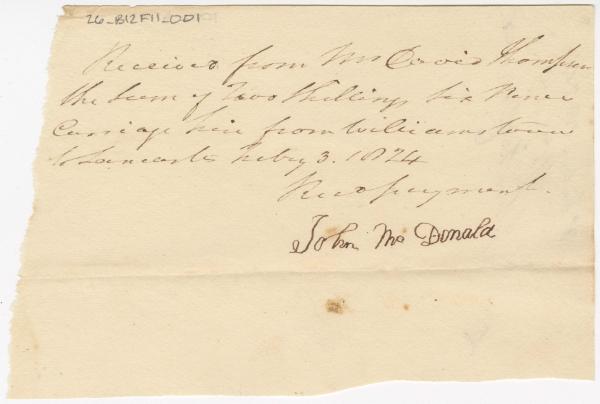 26-B12F11-001
Received from Mr David Thompson
the sum of Two Shillings Six Pence
Carriage hire from Williamstown
to Lancaster Feby 3. 1824
Recd payment.
John Mc Donald